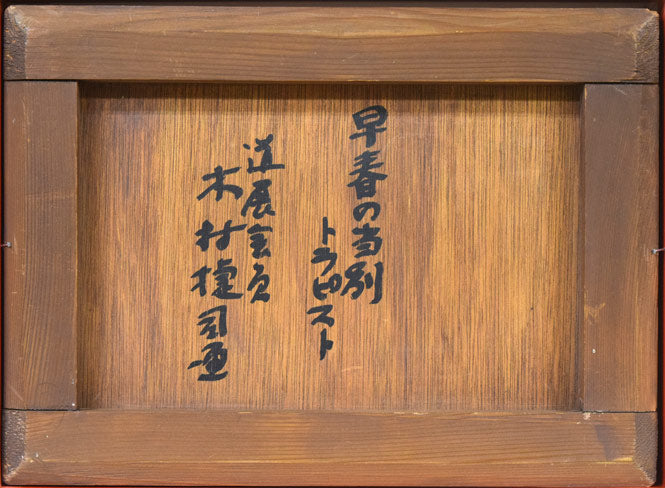 早春の当別
トラピスト
道展会員
木村捷司画